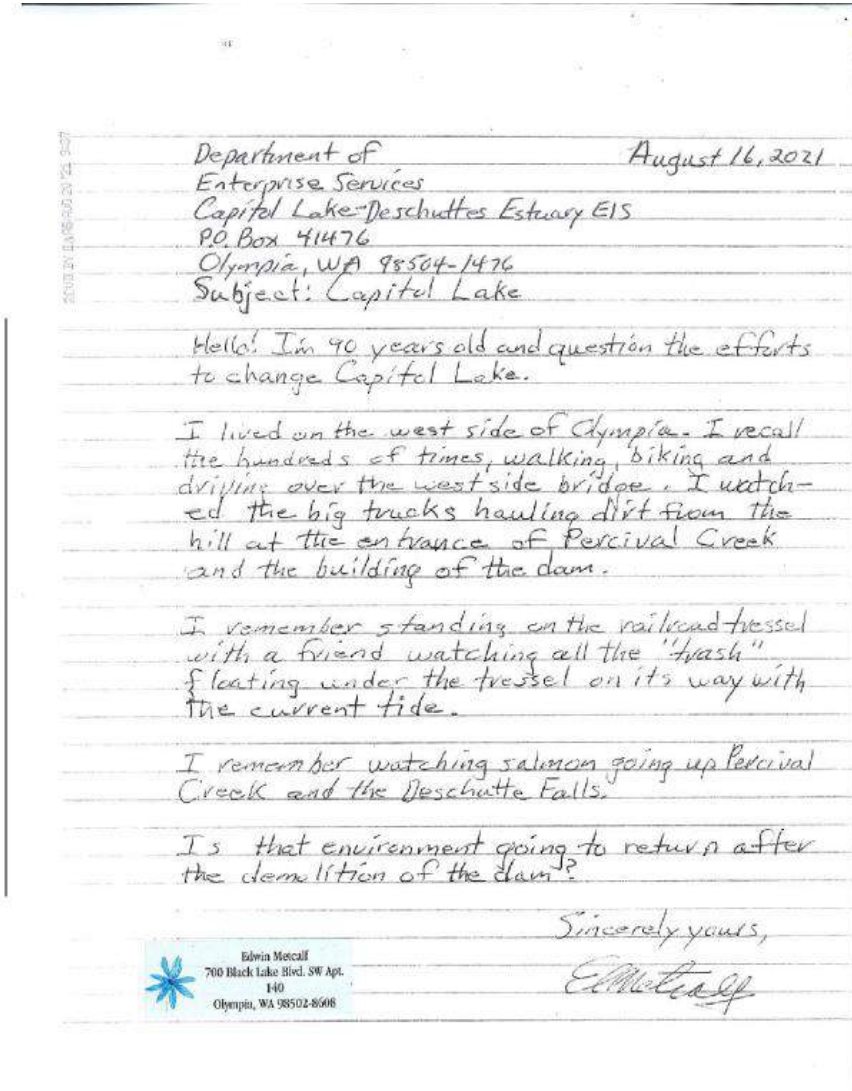 Department of
August 16, 2021
Enterprise Services
Capitol Lake-Deschuttes Estuary EIS
P.O. Box 41476
Olympia, WA 98504-1476
Subject: Capitol Lake
Hello! I'm 90 years old and question the efforts
to change Capitol Lake.
I lived on the west side of Olympia. I recall
the hundreds of times, walking, biking and
driving over the westside bridge. I watch-
ed the big trucks hauling dirt from the
hill at the entrance of Percival Creek
and the building of the dam.
I remember standing on the railroad tressel
with a friend watching all the "trash"
floating under the tressel on its way with
the current tide.
I remember watching salmon going up Percival
Creek and the Deschutte Falls.
Is that environment going to return after
the demolition of the dam?
Sincerely yours,
Edwin Metcalf
700 Black Lake Blvd. SW Apt.
140
Olympia, WA 98502-8608